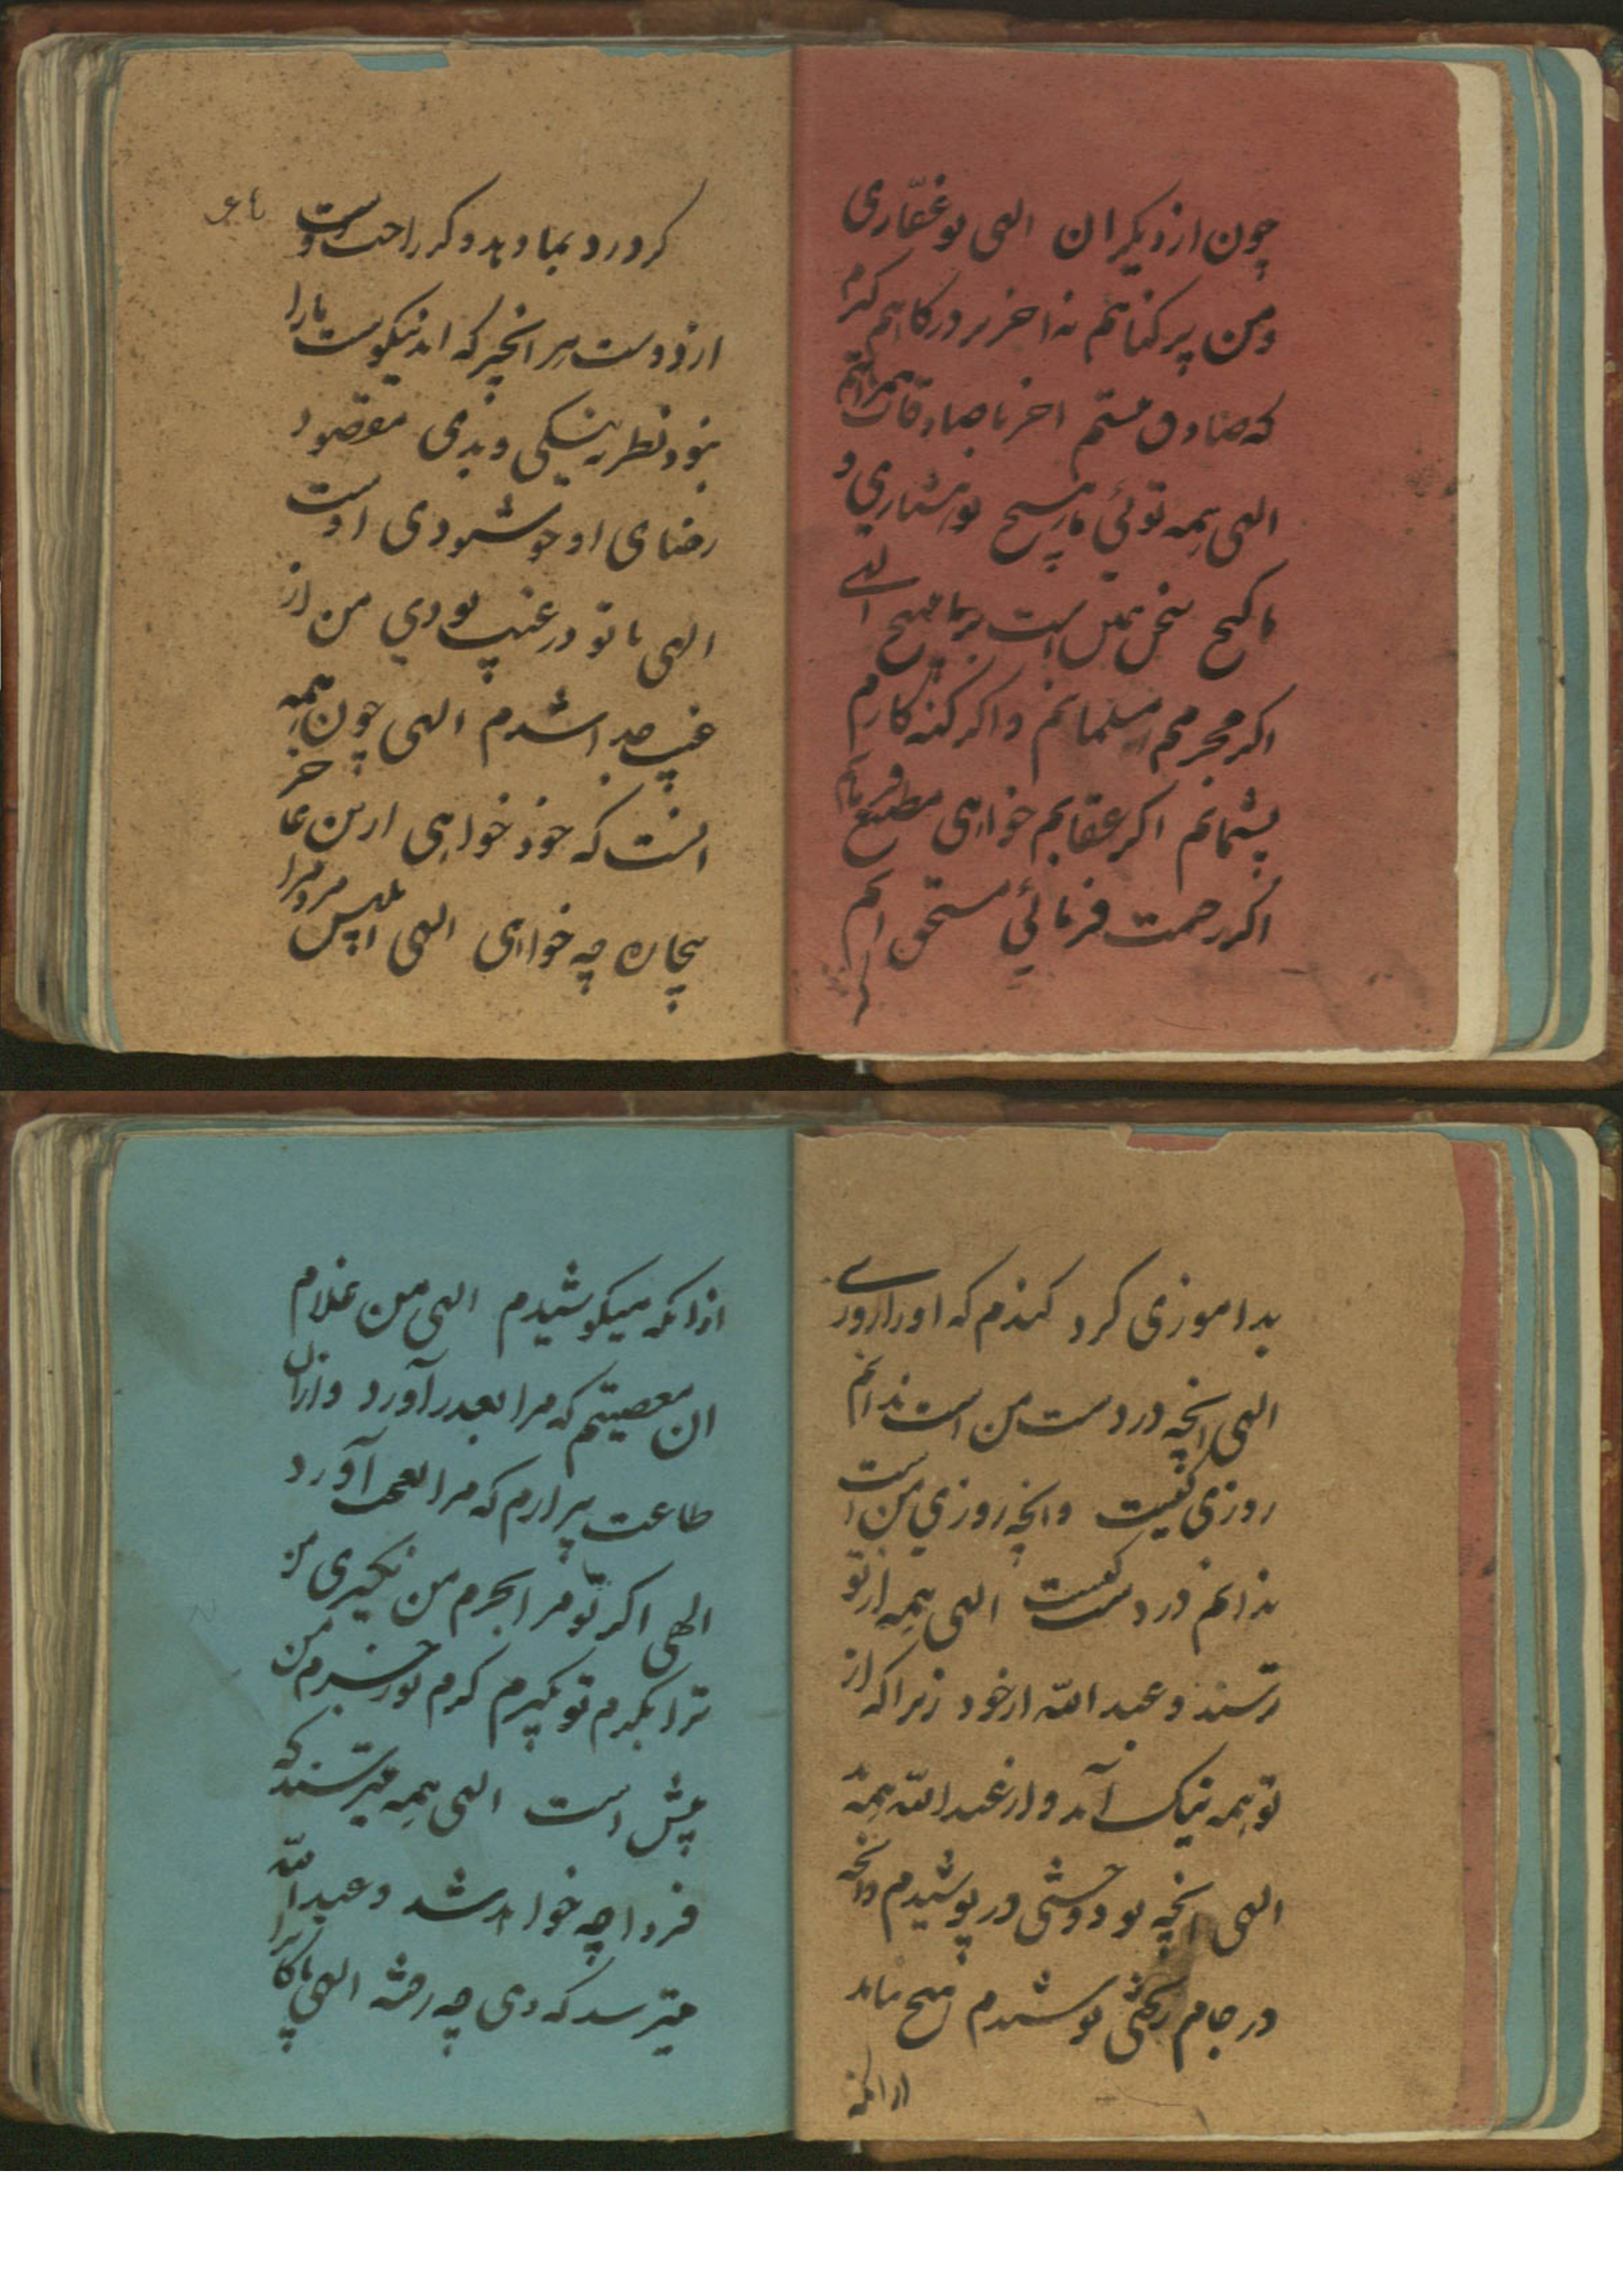 چون از دیکران الهی تو غفّاری
و من پر کناهم نه اخر بر درکاهم کیرم
که صادق نیستم اخر با صادقان همراهم
الهی همه توئی ما هیچ تو بشماری و
ما کیج سخن همین است بر ما مپیچ الهی
اکر مجرمم مسلمانم و اکر کنه کارم
پشیمانم اکر عقابم خواهی مطیع فرمانم
اکر رحمت فرمائی مستحق انم
کر
کر درد بما دهد و کر راحت دوست
از دوست هر انچیز که اید نیکوست ما را
نبود نظر به نیکی و بدی مقصود
رضای او خوشنودی اوست
الهی با تو در غیب بودی من از
غیب جدا شدم الهی چون همه
انست که خود خواهی ازین عاجز
بیچاره چه خواهی الهی ابلیس مرد مرا
بداموزی کرد کندم که او را روزی
الهی انچه در دست من است ندانم
روزی کیست و انچه روزی من است
ندانم در دست کیست الهی همه از تو
ترسند و عبد الله از خود زیرا که از
تو همه نیک آمد و از عبد الله همه بد
الهی انچه تو دوختی در پوشیدم و انچه
در جام ریختی نوشیدم هیچ نیامد
از انکه
از انکه میکوشیدم الهی من غلام
ان معصیتم که مرا بعذر آورد و از ان
طاعت بیزارم که مرا بعجب آورد
الهی اکر تو مرا بجرم من بکیری من
ترا بکرم تو بکیرم کرم تو از جرم من
بیش است الهی همه میترسند که
فردا چه خواهد شد و عبد الله
میترسد که دی چه رفته الهی پاکا ترا